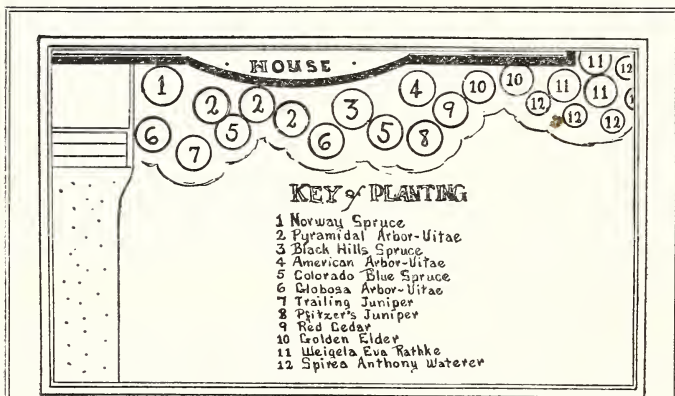 · HOUSE ·
1 2 2 2 3 4 10 10 11 12
6 7 5 6 5 8 9 12 11 11 12 12
KEY of PLANTING
1 Norway Spruce
2 Pyramidal Arbor-Vitae
3 Black Hills Spruce
4 American Arbor-Vitae
5 Colorado Blue Spruce
6 Globosa Arbor-Vitae
7 Trailing Juniper
8 Pfitzer's Juniper
9 Red Cedar
10 Golden Elder
11 Weigela Eva Rathke
12 Spirea Anthony Waterer